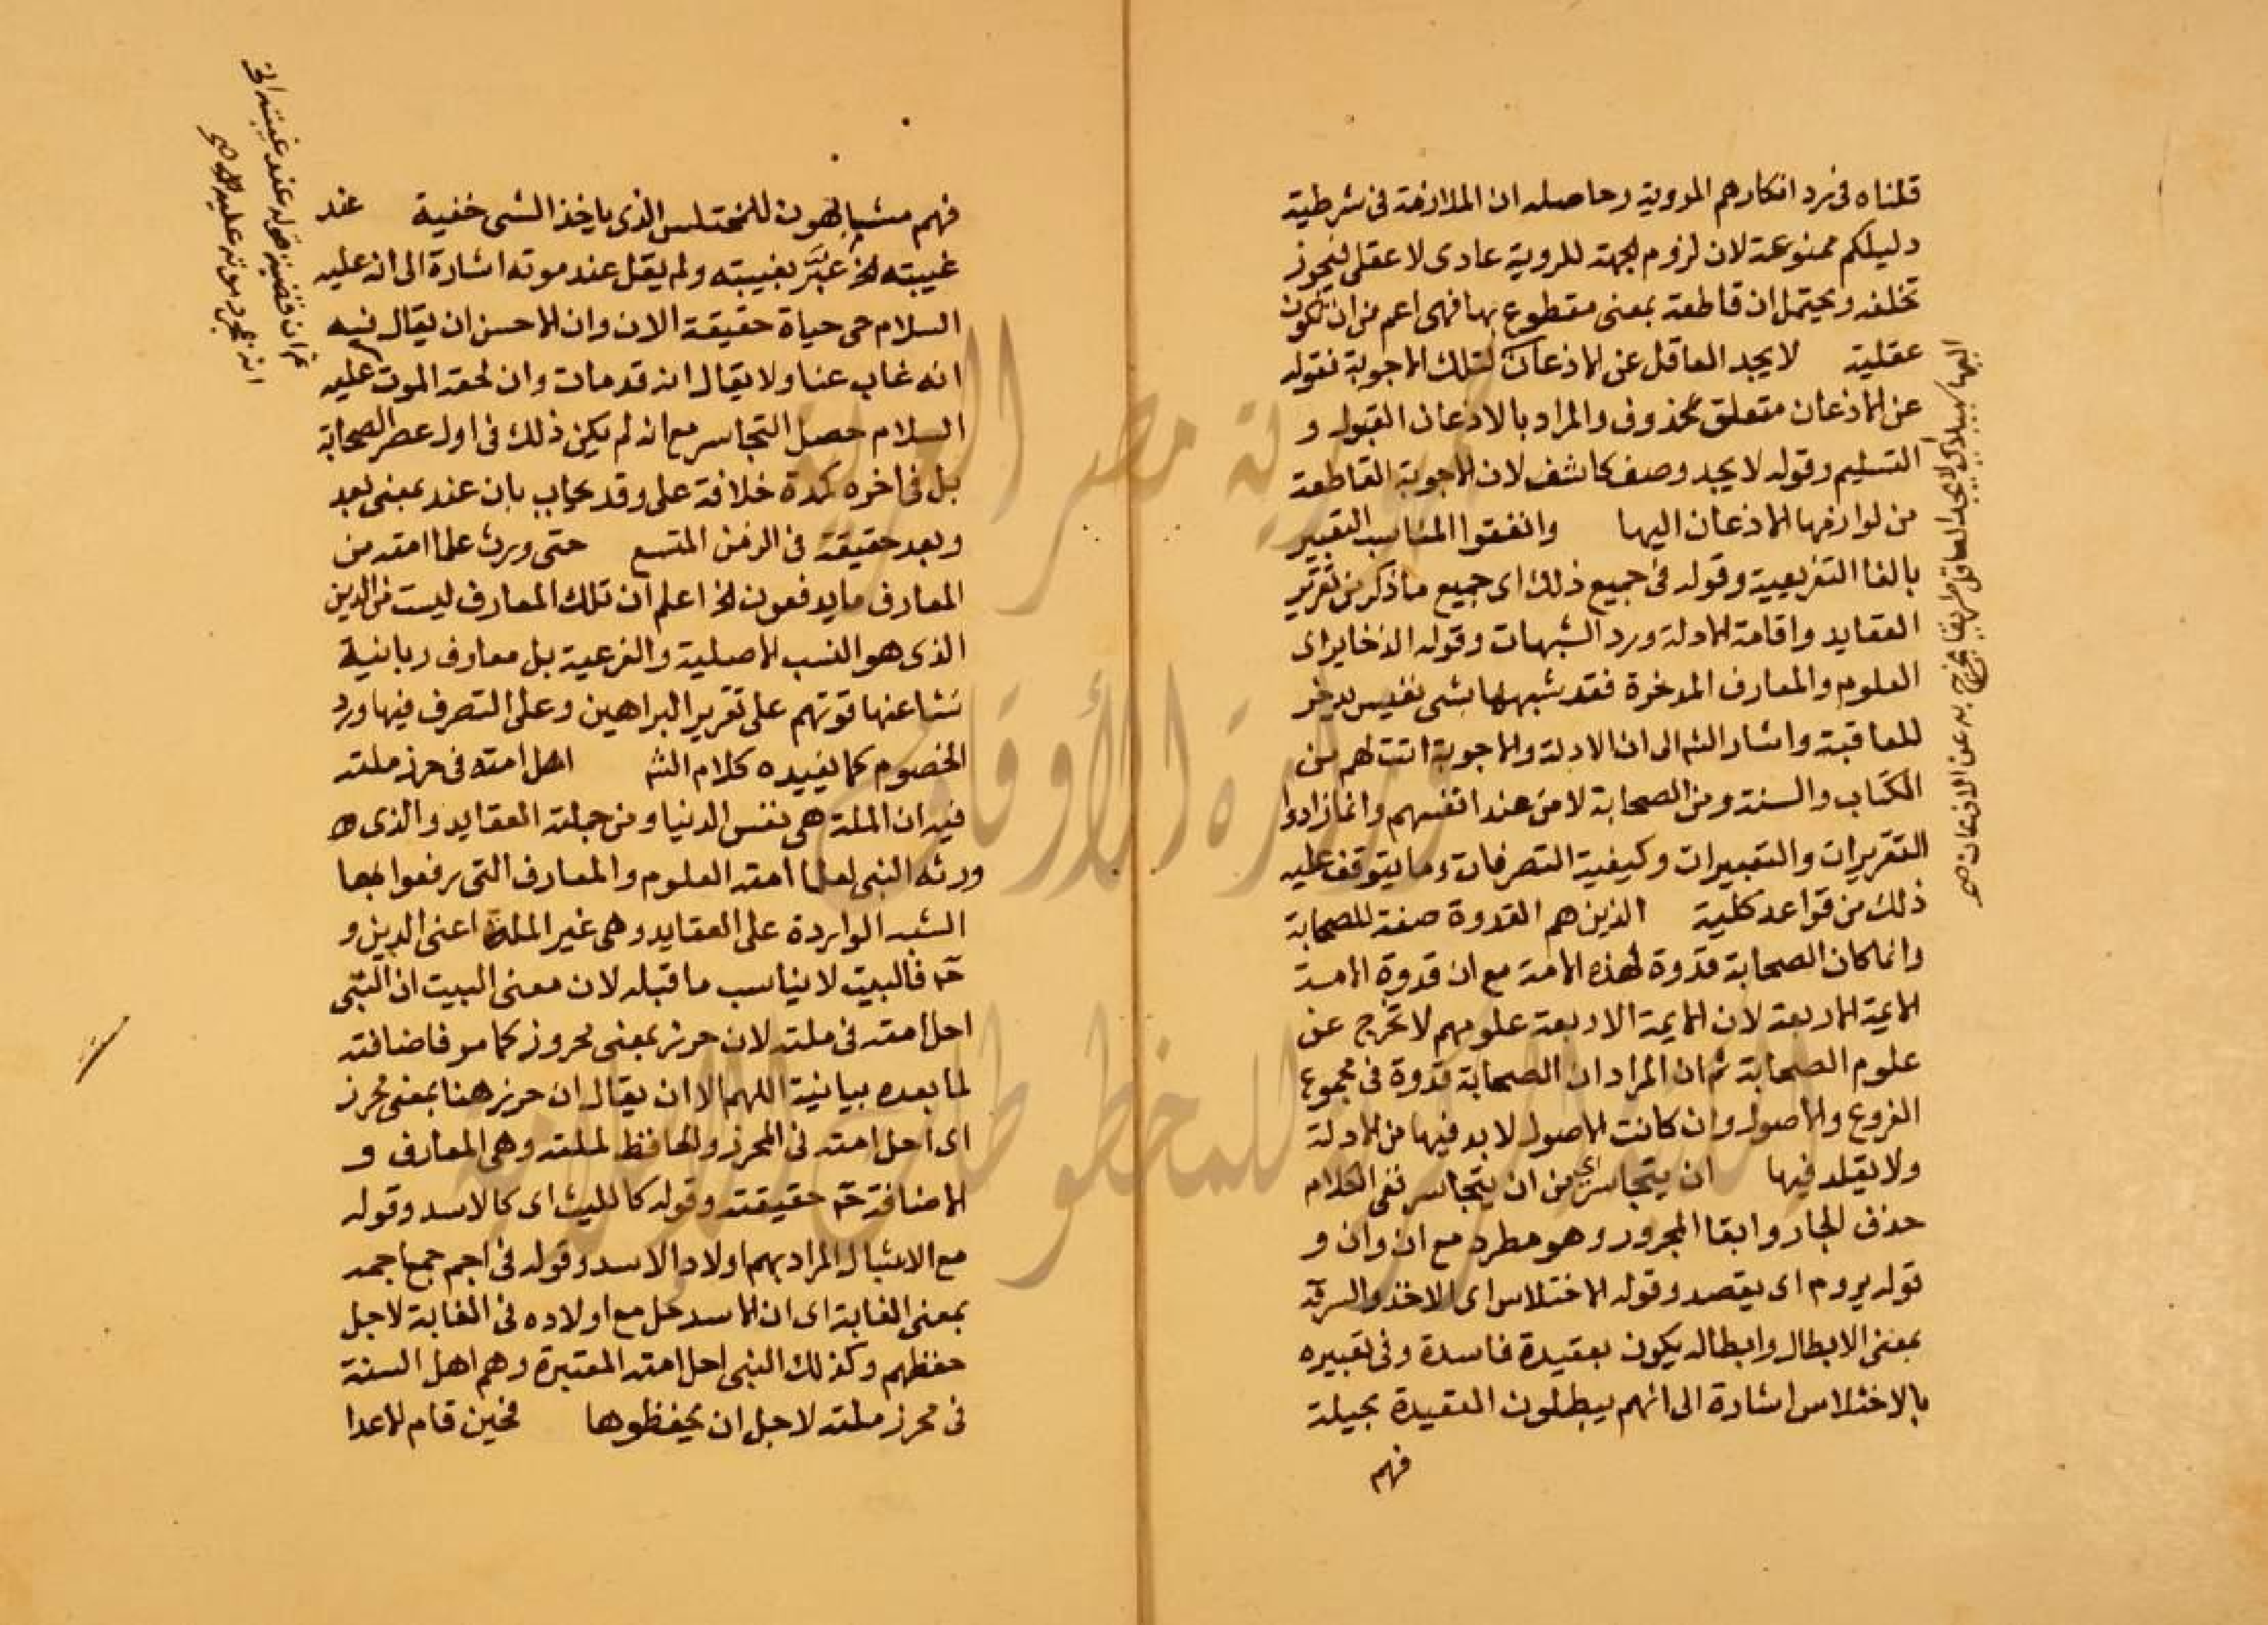 قلناه فى رد انكارهم الرويية وحاصله ان الملازمة فى شرطية
دليلكم ممنوعة لان لزوم الجهة للروية عادى لا عقلى فيجوز
تخلفه ويحتمل ان قاطعة بمعنى مقطوع بها فهى اعم من ان تكون
عقلية لا يجد العاقل عن الاذعان لتلك الاجوبة فقوله
عن الاذعان متعلق بمحذوف والمراد بالاذعان القبول و
التسليم وقوله لا يجد وصف كاشف لان الاجوبة القاطعة
من لوازمها الاذعان اليها واتفقوا المناسب التعبير
بالفا التفريعية وقوله فى جميع ذلك اى جميع ما ذكر من تقرير
العقايد واقامة الادلة ورد الشبهات وقوله الذخاير اى
العلوم والمعارف المدخرة فقد شبهها بشى نفيس يدخر
للعاقبة واشار الشه الى ان الادلة والاجوبة اتت لهم من
الكتاب والسنة ومن الصحابة لا من عند انفسهم وانما زادوا
التقريرات والتعبيرات وكيفية التصرفات وما يتوقف عليه
ذلك من قواعد كلية الذين هم القدوة صفة للصحابة
وانما كان الصحابة قدوة لهذه الامة مع ان قدوة الامة
الايمة الاربعة لان الايمة الاربعة علومهم لا تخرج عن
علوم الصحابة ثم ان المراد ان الصحابة قدوة فى مجموع
الفروع والاصول وان كانت الاصول لا بد فيها من الادلة
ولا يقلد فيها ان يتجاسر اى من ان يتجاسر ففى الكلام
حذف الجار وابقا المجرور وهو مطرد مع ان وان و
قوله يروم اى يقصد وقوله الاختلاس اى الاخذ والسرقة
بمعنى الابطال وابطاله يكون بعقيدة فاسدة وفى تعبيره
بالاختلاس اشارة الى انهم يبطلون العقيدة بحيلة
فهم
اليها سبيلا اى لا يجد العاقل طريقا يخرج به عن الاذعان صح
فهم مشبهون للمختلس الذى ياخذ الشى خفية عند
غيبته الخ عبّر بغيبته ولم يقل عند موته اشارة الى انه عليه
السلام حى حياة حقيقة الان وان الاحسن ان يقال فيه
انه غاب عنا ولا يقال انه قد مات وان لحقه الموت عليه
السلام حصل التجاسر مع انه لم يكن ذلك فى اول عصر الصحابة
بل فى اخره كمدة خلافة على وقد يجاب بان عند بمعنى بعد
وبعد حقيقة فى الزمن المتسع حتى ورث علما امته من
المعارف ما يدفعون الخ اعلم ان تلك المعارف ليست من الدين
الذى هو النسب الاصلية والفرعية بل معارف ربانية
نشا عنها قوتهم على تقرير البراهين وعلى التصرف فيها ورد
الخصوم كما يفيده كلام الشه احل امته فى حرز ملته
فيه ان الملة هى نفس الدنيا ومن جملته العقايد والذى ه
ورثه النبى لعلما امته العلوم والمعارف التى يرفعوا بها
الشبه الواردة على العقايد وهى غير الملة اعنى الدين و
ح فالبيت لا يناسب ما قبله لان معنى البيت ان النبى
احل امته فى ملته لان حرز بمعنى محروز كما مر فاضافته
لما بعده بيانية اللهم الا ان يقال ان حرز هنا بمعنى محرز
اى احل امته فى المحرز والحافظ لملته وهى المعارف و
الاضافة ح حقيقة وقوله كالليث اى كالاسد وقوله
مع الاشبال المراد بهم اولاد الاسد وقوله فى اجم جمع اجمه
بمعنى الغابة اى ان الاسد حل مع اولاده فى الغابة لاجل
حفظهم وكذلك النبى احل امته المعتبرة وهم اهل السنة
فى محرز ملته لاجل ان يحفظوها فحين قام الاعدا
ثم ان قضية قوله عند غيبته الخ
انه بمجرد موته عليه صح